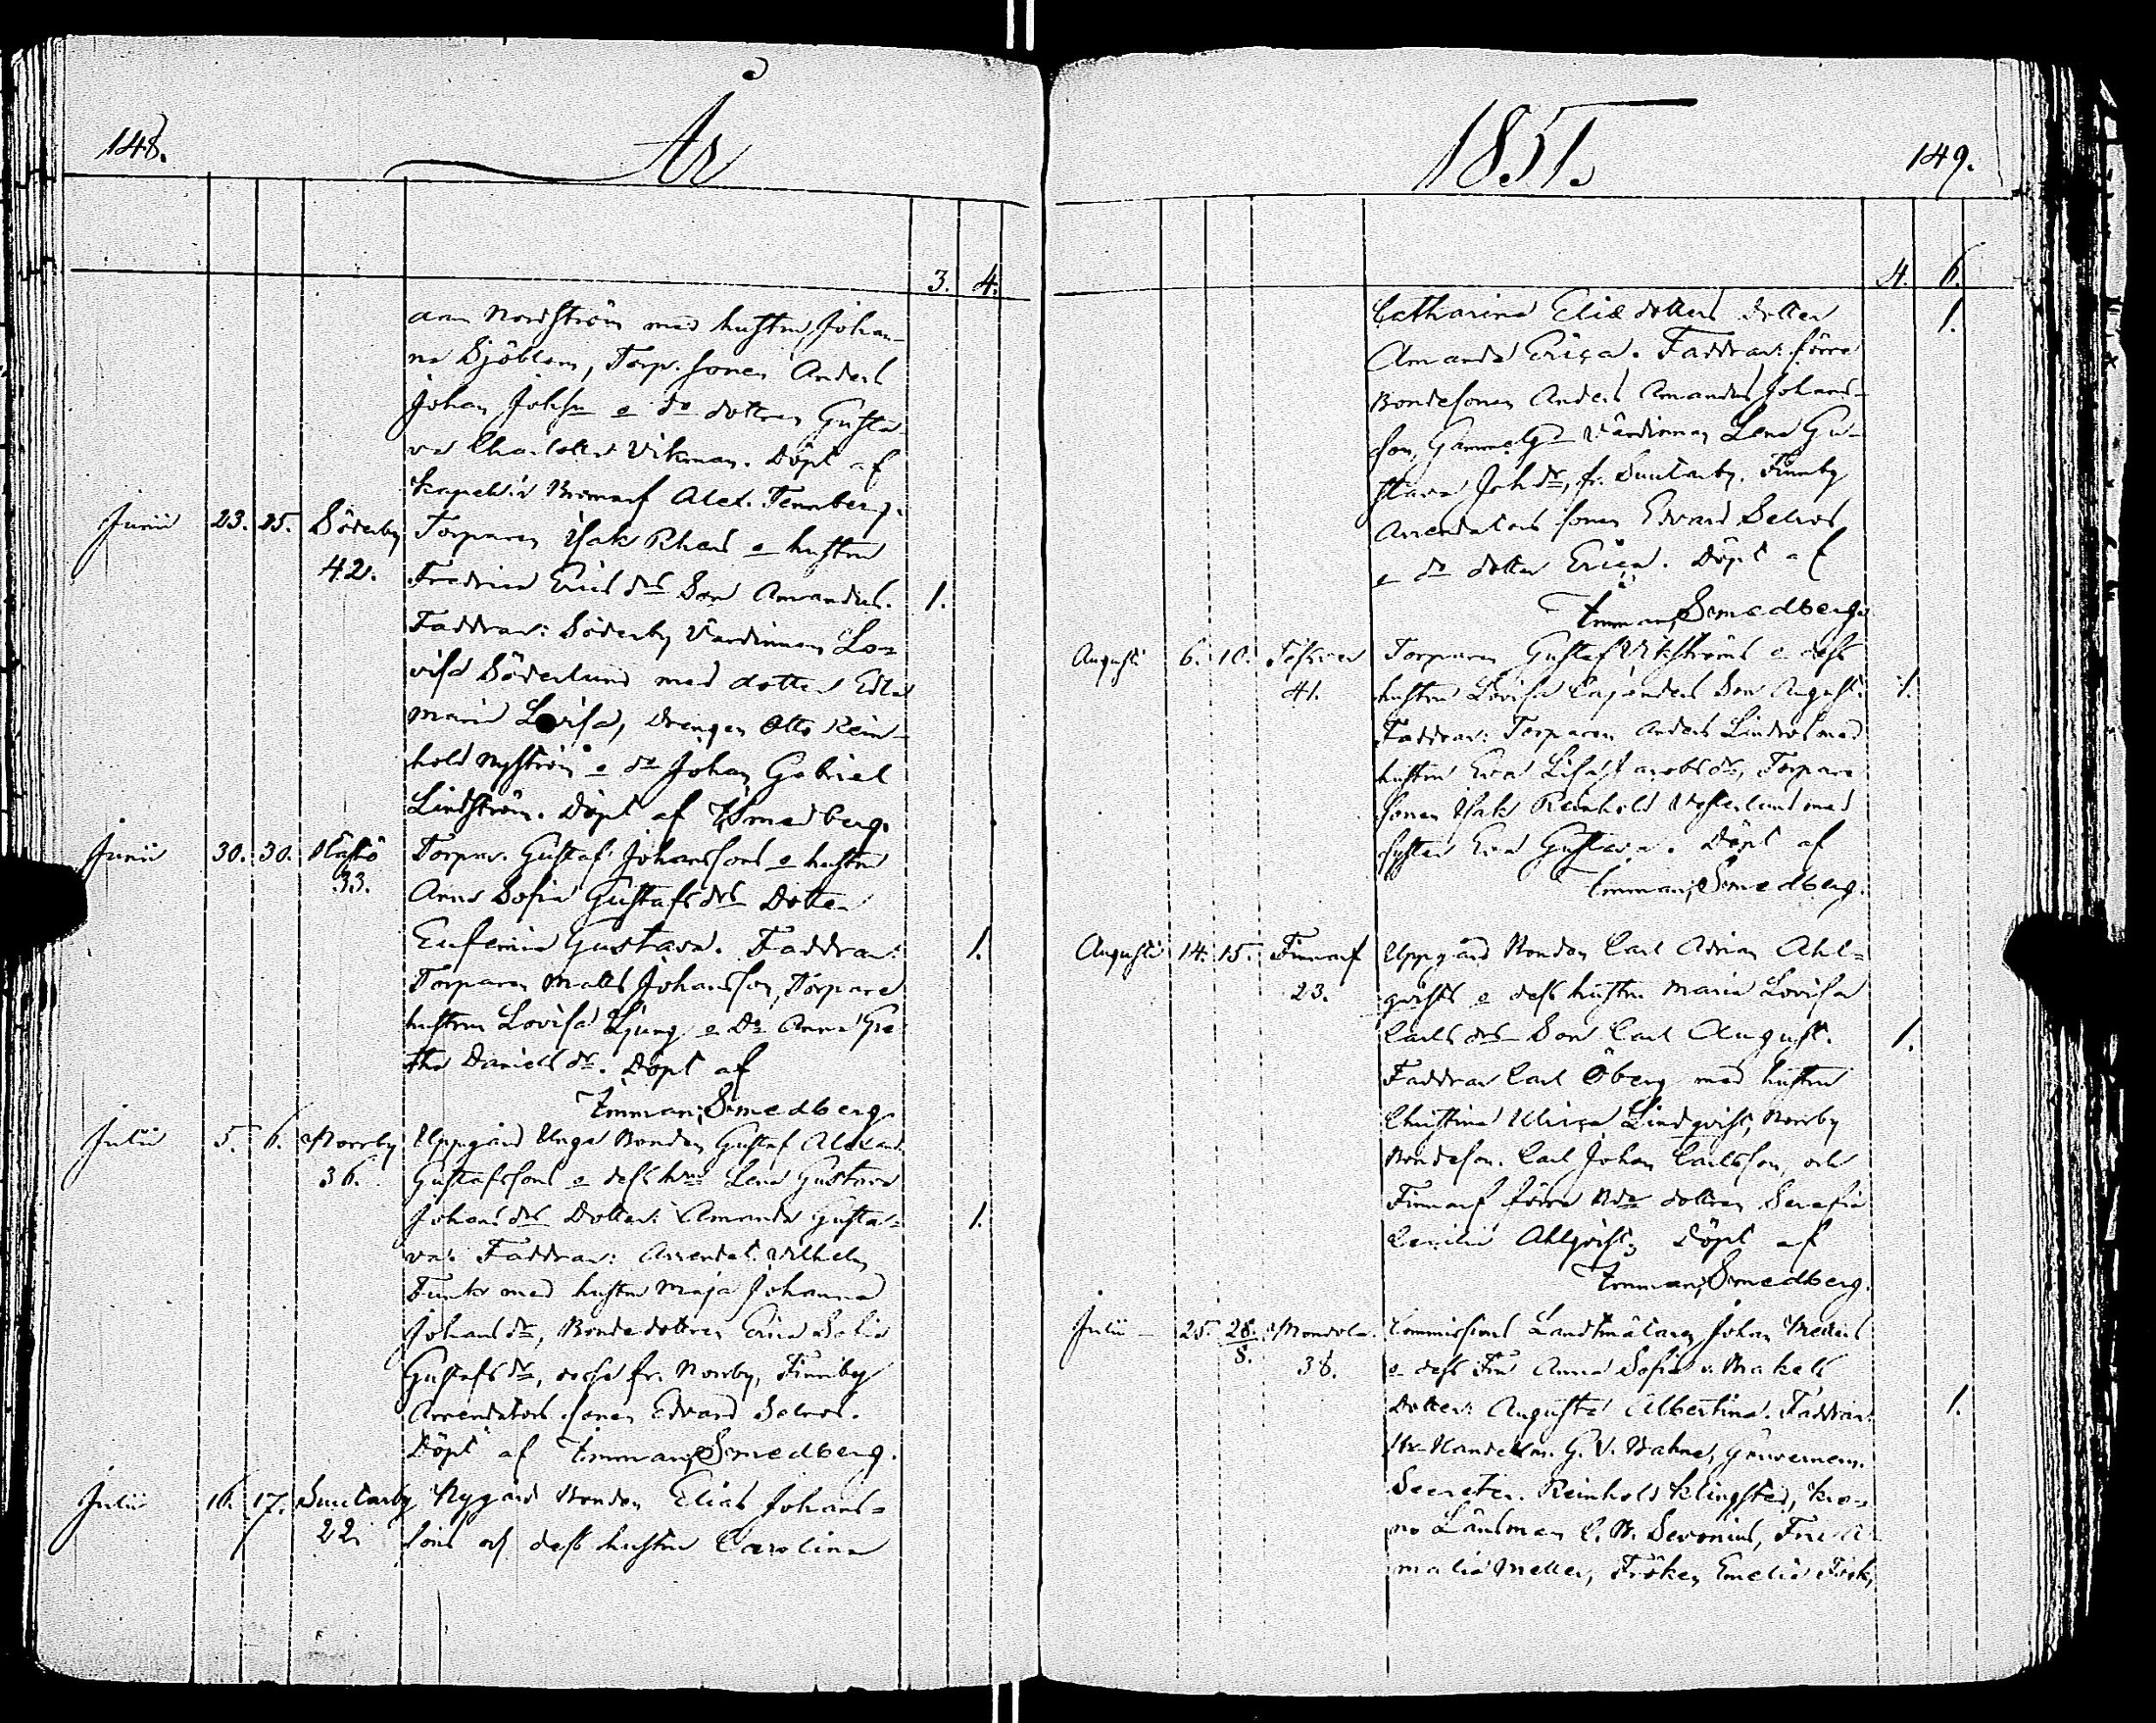 148.
År
3. 4.
Nordström med hustru Johan-
na Sjöblom, Torp. sonen Anders
Johan Johsn o do dottren Gusta-
va Charlotta Vikman. Döpt af
Bromarf Alex. Tennberg.
Junii 23. 25. Söderby Torparen Isak Rhens o hustru
42. Fredrica Erics drs Son Amandus. 1.
Faddrar: Söderby Värdinnan Lo-
visa Söderlund med dotter Edla
Maria Lovisa, Drengen Otto Rein-
hold Nyström o do Johan Gabriel
Lindström. Döpt af Smedberg.
Junii 30. 30. 33. Torpar. Gustaf Johanssons o hustru
Anna Sofia Gustafs drs Dotter
Eufemia Gustava. Faddrar: 1.
Torparen Matts Johansson, Torpare
hustrun Lovisa Ljung o Do Anna Gre-
tha Daniels dr. Döpt af
Imman. Smedberg.
Julii 5. 6. Norrby Uppgård Unga Bonden Gustaf Alexand.
36. Gustafssons o dess hru Lena Gustava
Johans drs Dotter: Amanda Gusta- 1.
va. Faddrar: Arrendat. Wilhelm
Funk med hustru Maja Johanna
Johans dr, Bondedottren Erica
Gustafs dr, fr. Norrby, Finnby
Arrendators sonen Edvard Selros.
Döpt af Imman. Smedberg.
Julii 16. 17. Suutarby Nygård Bonden Elias Johans-
22 sons och dess hustru Carolina
1851.
149.
4. 6.
Catharina Eliæ dotters dotter 1.
Amanda Erica. Faddrar: förre
Bondesonen Anders Amandus Johans-
son, Gammelg. Värdinnan Lena Gu-
stava Joh dr, fr. Suutarby. Finnby
Arrendators sonen Edvard Selros
o do dotter Erica. Döpt af
Imman. Smedberg.
Augusti 6. 10. Torparen Gustaf Vikströms o dess
41. hustru Lovisa Cajanders Son August. 1.
Faddrar: Torparen Anders Lindros med
hustru Eva Lisa Jacobs dr, Torpare
sonen Isak Reinhold Vesterlund med
syster Eva Gustava. Döpt af
Imman. Smedberg.
Augusti 14. 15. Finnarf Uppgård Bonden Carl Adrian Ahl-
23. qvists o dess hustru Maria Lovisa
Carls drs Son Carl August. 1.
Faddrar Carl Öberg med hustru
Christina Ulrica Lindqvist, Norrby
Bondeson. Carl Johan Carlsson, och
Finnarf förre Bde dottren Serafia
Cecilia Ahlqvist; Döpt af
Imman. Smedberg.
Julii 25. 28. 8. Commissions Landtmätaren Johan
38. o dess Fru Anna Sofia
Dotter: Augusta Albertina. Faddrar: 1.
Hr Handelsm. G. V. Gouvernem.
Secreter. Reinhold Klingsted, Kro-
no Länsman C. W. Sevonius, Fru A-
malia Meller, Fröken Emelie